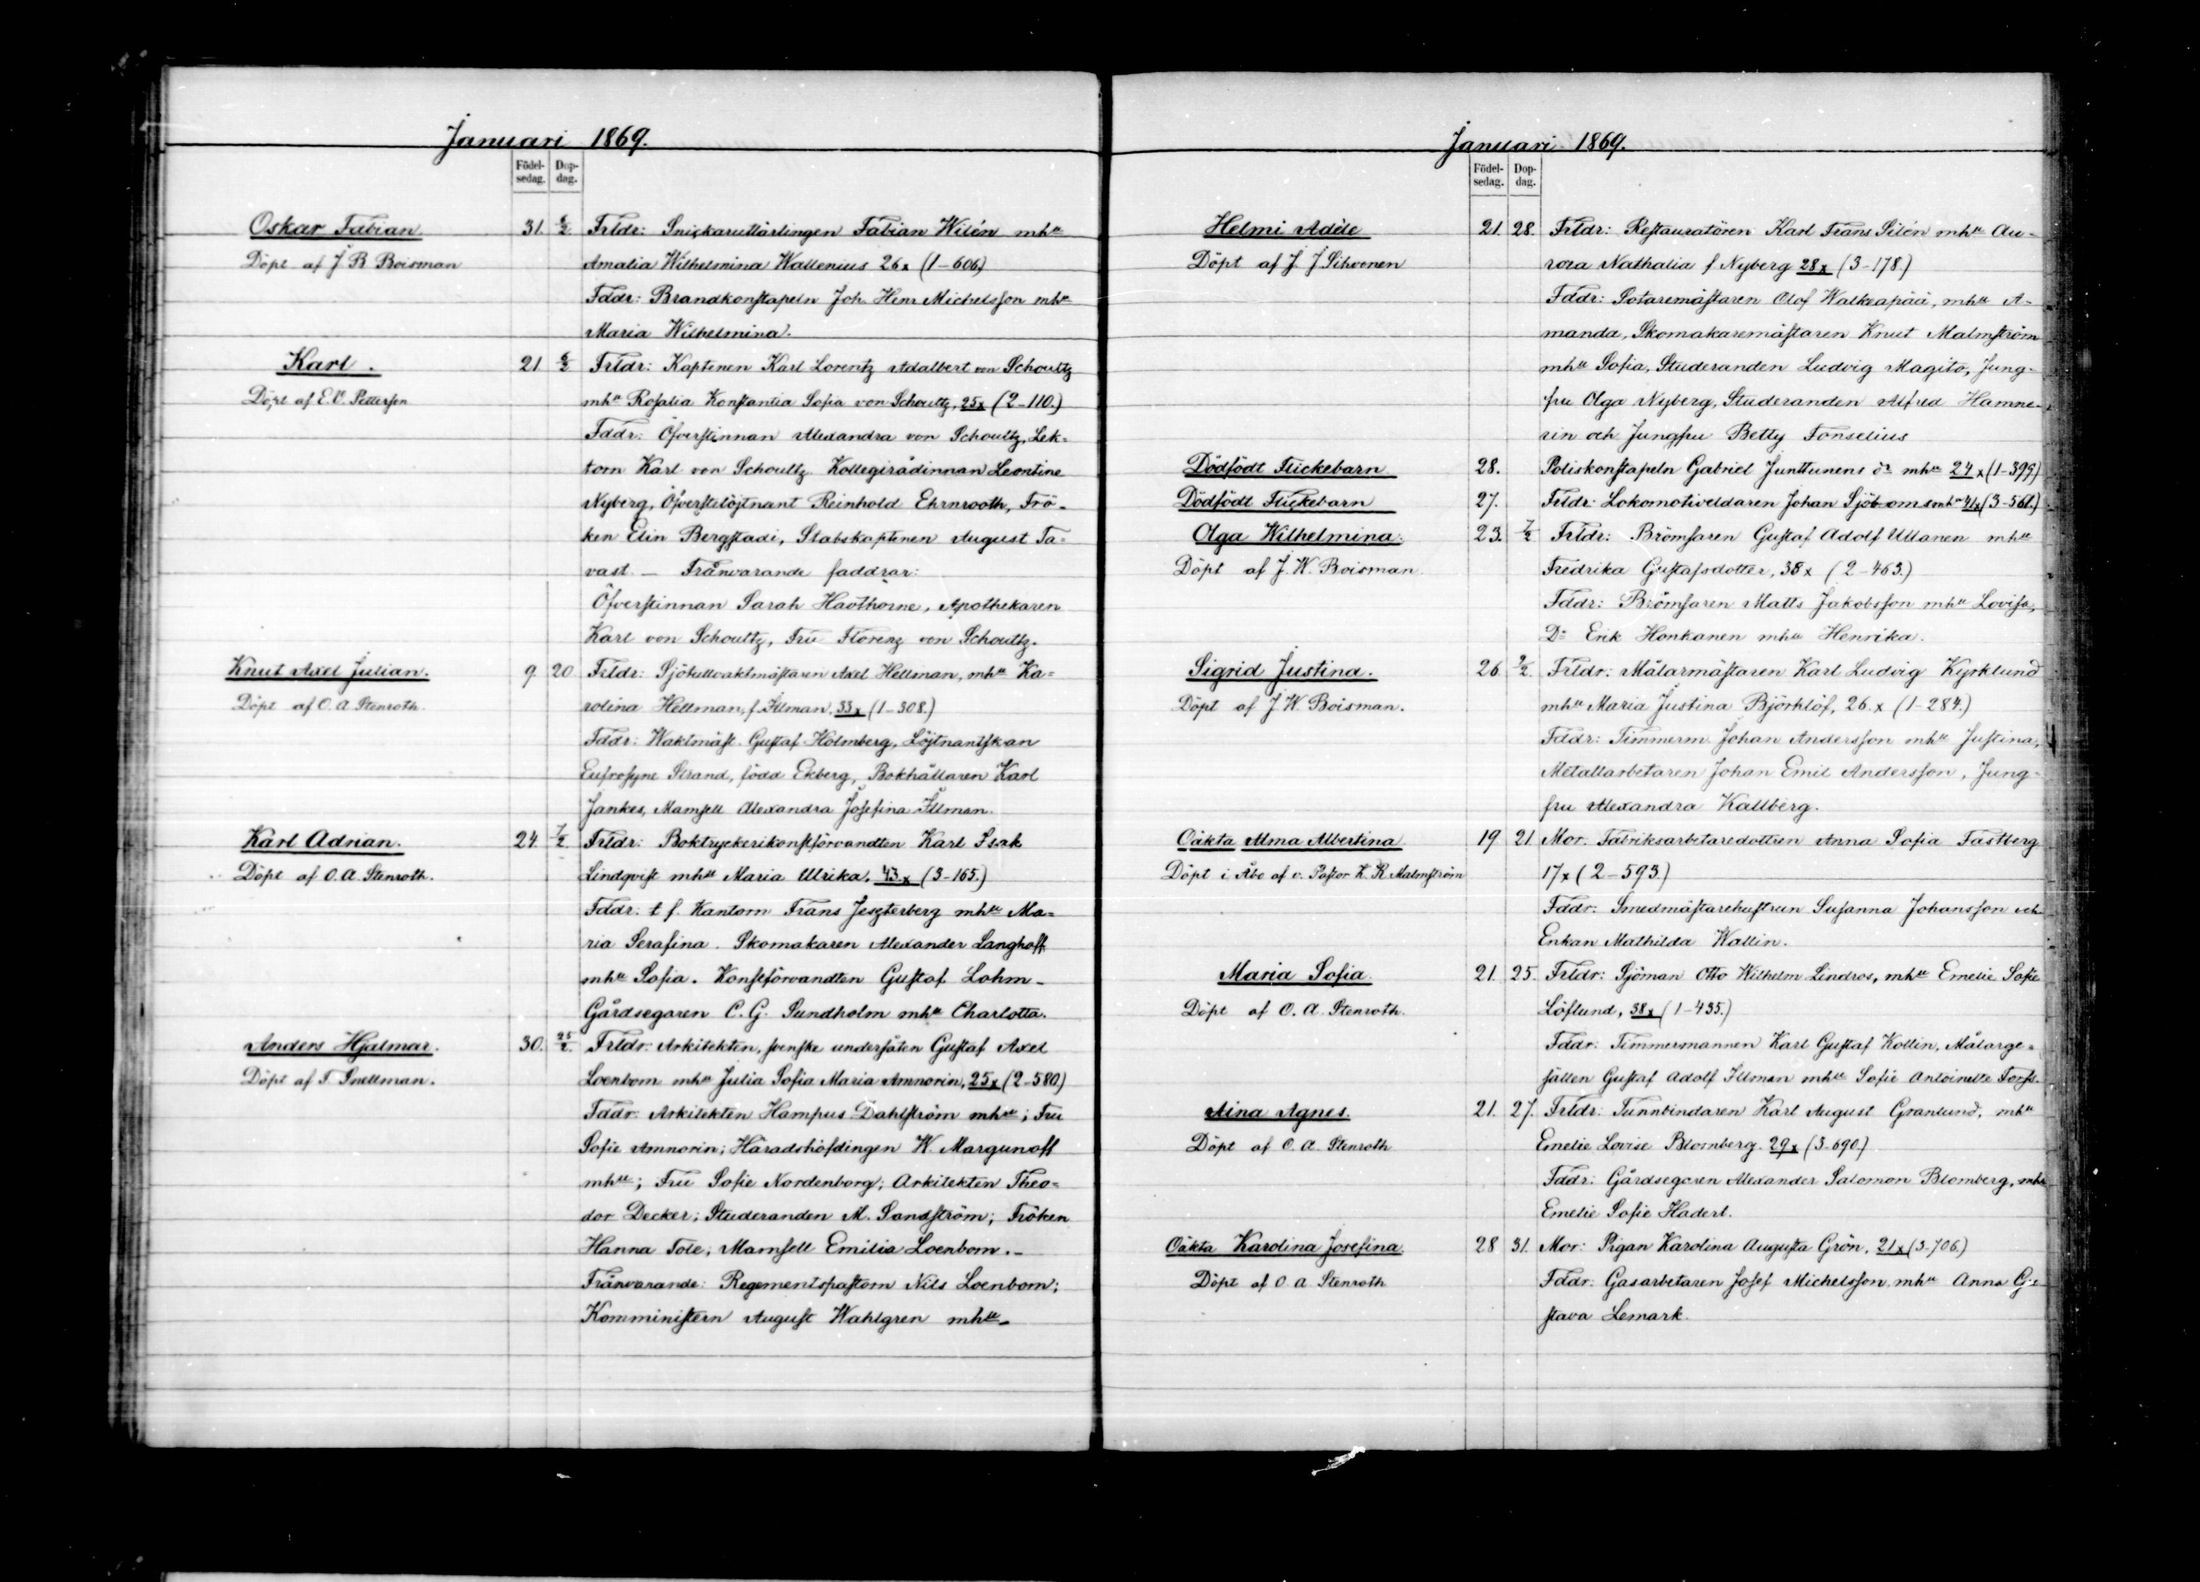 Januari 1869.
Födel-sedag. Dop-dag.
Oskar Fabian 31. 6/2 Frldr: Snickarutlärlingen Fabian Wilén mhu
Döpt af J B Boisman Amalia Wilhelmina Wallenius 26x (1-606)
Fddr: Brandkonstapeln Joh. Henr Michelsson mhu
Maria Wilhelmina.
Karl. 21 6/2 Frldr: Kaptenen Karl Lorentz Adalbert von Schoultz
Döpt af E.V. Petterson mhu Rosalia Konstantia Sofia von Schoultz, 25x (2-110.)
Fddr: Öfverstinnan Alexandra von Schoultz, Lek-
torn Karl von Schoultz Kollegirådinnan Leontine
Nyberg, Öfverstelöjtnant Reinhold Ehrnrooth, Frö-
ken Elin Bergstadi, Stabskaptenen August Ta-
vast. — Frånvarande faddrar:
Öfverstinnan Sarah Havthorne, Apothekaren
Karl von Schoultz, Fru Florenz von Schoultz.
Knut Axel Julian. 9. 20. Frldr: Sjötullvaktmästaren Axel Hellman, mhu Ka-
Döpt af O. A Stenroth. rolina Hellman, f. Illman, 33x (1-308.)
Fddr: Waktmäst. Gustaf Holmberg, Löjtnantskan
Eufrosyne Strand, född Ekberg, Bokhållaren Karl
Jankes, Mamsell Alexandra Josefina Illman.
Karl Adrian. 24 7/2 Frldr: Boktryckerikonstförvandten Karl Isak
Döpt af O. A. Stenroth. Lindqvist mhu Maria Ulrika, 43x (3-165.)
Fddr: t. f. Kantorn Frans Jeszterberg mhu Ma-
ria Serafina. Skomakaren Alexander Langhoff
mhu Sofia. Konstförvandten Gustaf Lohm-
Gårdsegaren C. G. Sundholm mhu Charlotta.
Anders Hjalmar. 30. 25/2. Frldr: Arkitekten, svenske undersåten Gustaf Axel
Döpt af T. Snellman. Loenbom mhu Julia Sofia Maria Amnorin, 25x (2-580)
Fddr: Arkitekten Hampus Dahlström mhu; Fru
Sofie Amnorin; Häradshöfdingen W. Margunoff
mhu; Fru Sofie Nordenborg; Arkitekten Theo-
dor Decker; Studeranden M. Sandström; Fröken
Hanna Tole; Mamsell Emilia Loenbom.-
Frånvarande: Regementspastorn Nils Loenbom;
Komministern August Wahlgren mhu-
Januari 1869.
Födel-sedag. Dop-dag.
Helmi Adèle 21. 28. Frldr: Restauratören Karl Frans Silén mhu Au-
Döpt af J. J. Sihvonen rora Nathalia f Nyberg 28x (3-178.)
Fddr: Sotaremästaren Olof Walkeapää, mhu A-
manda, Skomakaremästaren Knut Malmström
mhu Sofia, Studeranden Ludvig Magito, Jung-
fru Olga Nyberg, Studeranden Alfred Hamne-
rin och Jungfru Betty Fonselius
Dödfödt Flickebarn 28. Poliskonstapeln Gabriel Junttunens dr mhu 24x (1-399)
Dödfödt Flickebarn 27. Frldr: Lokomotiveldaren Johan Sjöbloms mhu 41x (3-561.)
Olga Wilhelmina. 23. 7/2 Frldr: Brömsaren Gustaf Adolf Ullanen mhu
Döpt af J. W. Boisman. Fredrika Gustafsdotter, 38x (2-463.)
Fddr: Brömsaren Matts Jakobsson mhu Lovisa,
Do Erik Honkanen mhu Henrika.
Sigrid Justina. 26. 9/2. Frldr: Målarmästaren Karl Ludvig Kyrklund
Döpt af J W. Boisman. mhu Maria Justina Björklöf, 26.x (1-284.)
Fddr: Timmerm. Johan Andersson mhu Justina,
Metallarbetaren Johan Emil Andersson, Jung-
fru Alexandra Kallberg.
Oäkta Alma Albertina 19. 21. Mor. Fabriksarbetaredottren Anna Sofia Fastberg
Döpt i Åbo af v. Pastor K. R Malmström 17x (2-593.)
Fddr: Smedmästarehustrun Susanna Johansson och
Enkan Mathilda Wallin.
Maria Sofia. 21. 25. Frldr: Sjöman Otto Wilhelm Lindros, mhu Emelie Sofie
Döpt af O. A. Stenroth. Löflund, 38x (1-435.)
Fddr: Timmermannen Karl Gustaf Kollin, Målarge-
sällen Gustaf Adolf Illman mhu Sofie Antoinette Forss.
Aina Agnes. 21. 27. Frldr: Tunnbindaren Karl August Granlund, mhu
Döpt af O. A. Stenroth Emelie Lovise Blomberg. 29x (3-690.)
Fddr: Gårdsegaren Alexander Salomon Blomberg, mhu
Emelie Sofie Haderl.
Oäkta Karolina Josefina. 28 31. Mor: Pigan Karolina Augusta Grön, 21x (3-706.)
Döpt af O. A Stenroth Fddr: Gasarbetaren Josef Michelsson mhu Anna Gu-
stava Lemark.